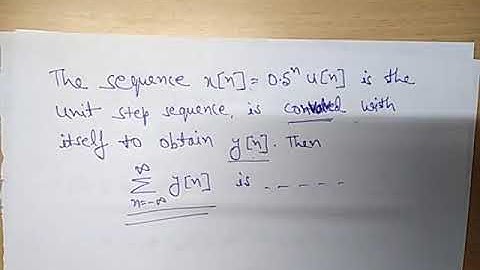 The sequence x[n] = 0.5ⁿ u[n] is the
unit step sequence, is convolved with
itself to obtain y[n]. Then
∞
∑ y[n] is _ _ _ _ _
n=-∞